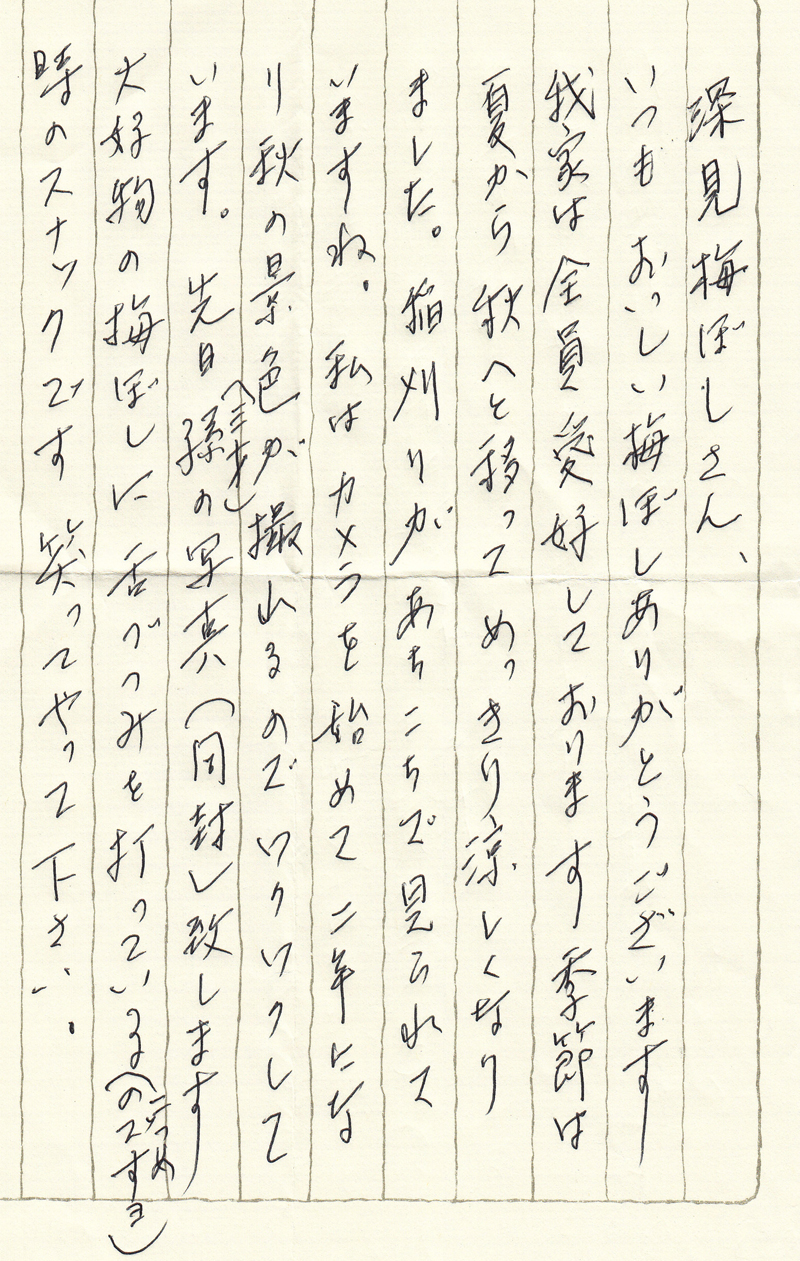 深見梅ぼしさん、
いつも おいしい梅ぼしありがとうございます
我家は全員愛好しております 季節は
夏から秋へと移ってめっきり涼しくなり
ました。稲刈りがあちこちで見られて
いますね。私はカメラを始めて二年にな
り秋の景色が撮れるのでワクワクして
います。先日孫(三才)の写真(同封し致します
大好物の梅ぼしに舌づつみを打っている(のですョ)
時のスナックです 笑ってやって下さい。